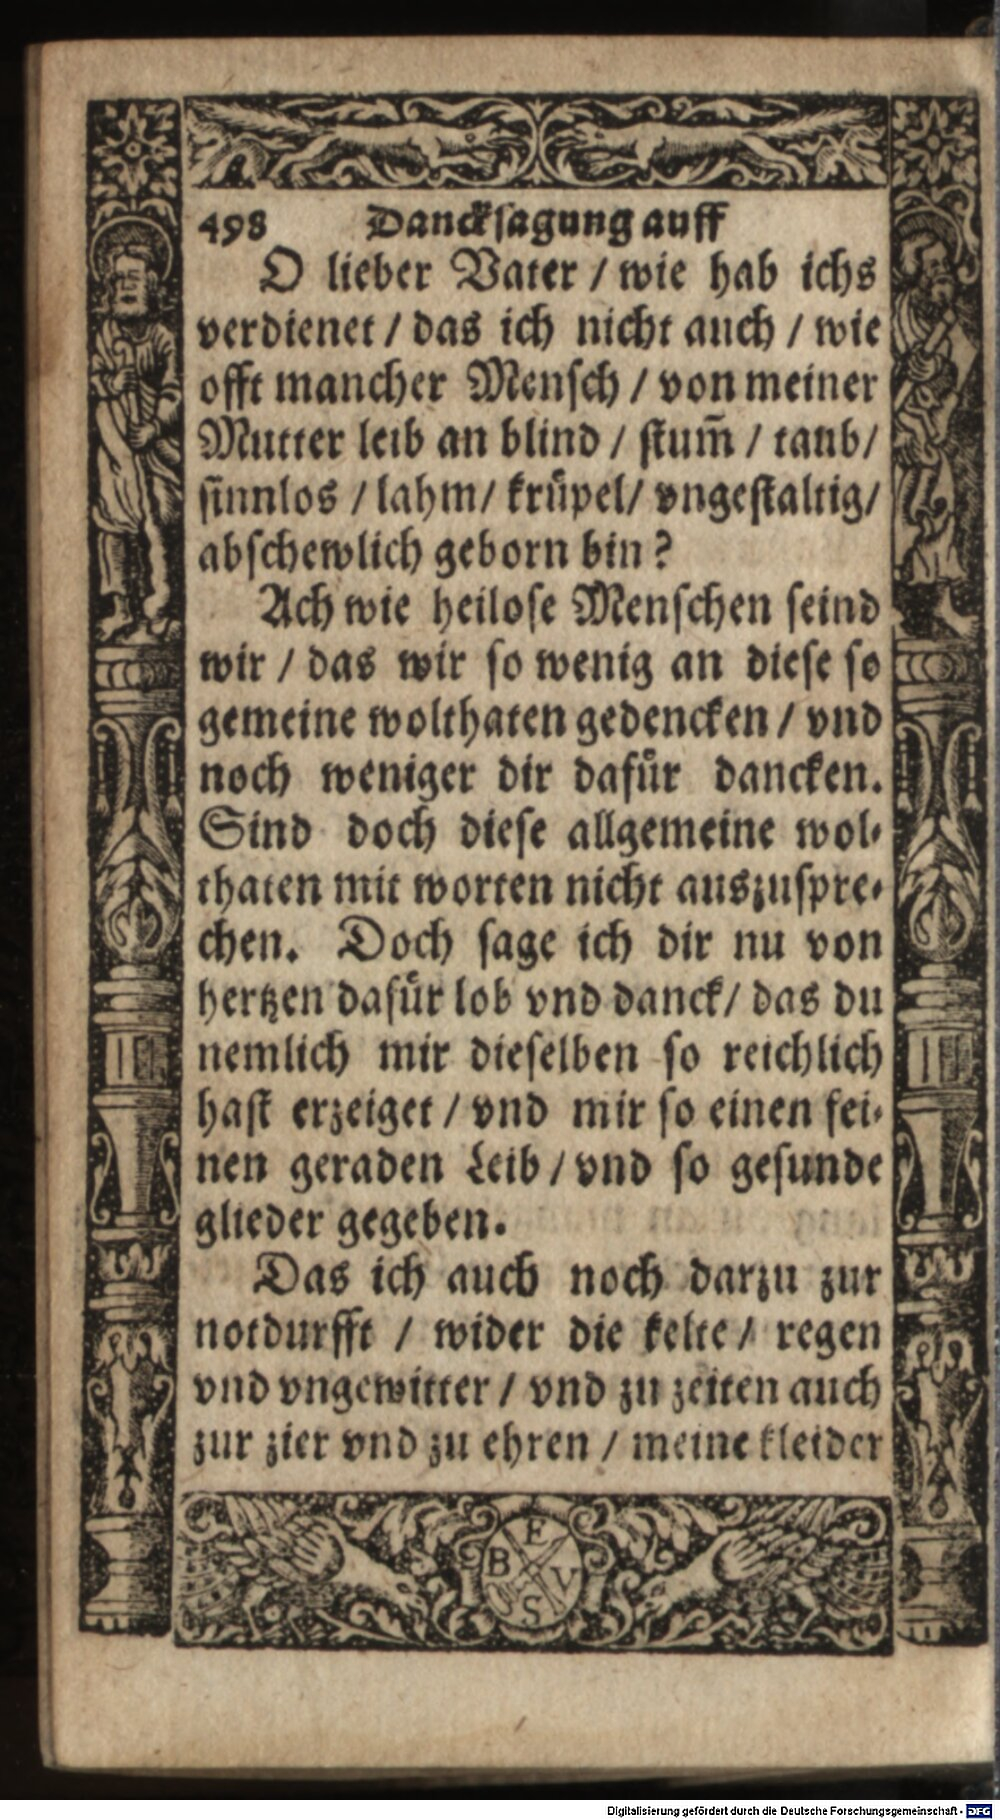 498 Dancksagung auff
O lieber Vater / wie hab ichs
verdienet / das ich nicht auch / wie
offt mancher Mensch / von meiner
Mutter leib an blind / stum̄ / taub /
sinnlos / lahm / krüpel / vngestaltig /
abschewlich geborn bin ?
Ach wie heilose Menschen seind
wir / das wir so wenig an diese so
gemeine wolthaten gedencken / vnd
noch weniger dir dafür dancken.
Sind doch diese allgemeine wol-
thaten mit worten nicht auszuspre-
chen. Doch sage ich dir nu von
hertzen dafür lob vnd danck / das du
nemlich mir dieselben so reichlich
hast erzeiget / vnd mir so einen fei-
nen geraden Leib / vnd so gesunde
glieder gegeben.
Das ich auch noch darzu zur
notdurfft / wider die kelte / regen
vnd vngewitter / vnd zu zeiten auch
zur zier vnd zu ehren / meine kleider
E
B V
S
Digitalisierung gefördert durch die Deutsche Forschungsgemeinschaft - DFG